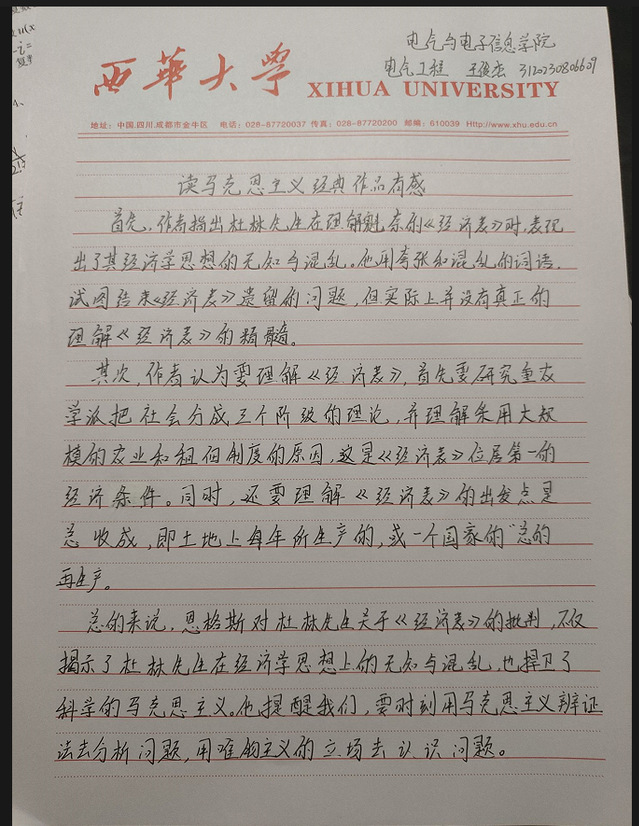 电气与电子信息学院
西华大学
电气工程 王俊杰 3120230806609
XIHUA UNIVERSITY
地址：中国.四川.成都市金牛区 电话：028-87720037 传真：028-87720200 邮编：610039 Http://www.xhu.edu.cn
读马克思主义经典作品有感
首先，作者指出杜林先生在理解魁奈的《经济表》时，表现
出了其经济学思想的无知与混乱。他用夸张和混乱的词语，
试图结束《经济表》遗留的问题，但实际上并没有真正的
理解《经济表》的精髓。
其次，作者认为要理解《经济表》，首先要研究重农
学派把社会分成三个阶级的理论，并理解采用大规
模的农业和租佃制度的原因，这是《经济表》位居第一的
经济条件。同时，还要理解《经济表》的出发点是
总收成，即土地上每年所生产的，或一个国家的“总的
再生产。
总的来说，恩格斯对杜林先生关于《经济表》的批判，不仅
揭示了杜林先生在经济学思想上的无知与混乱，也捍卫了
科学的马克思主义。他提醒我们，要时刻用马克思主义辨证
法去分析问题，用唯物主义的立场去认识问题。